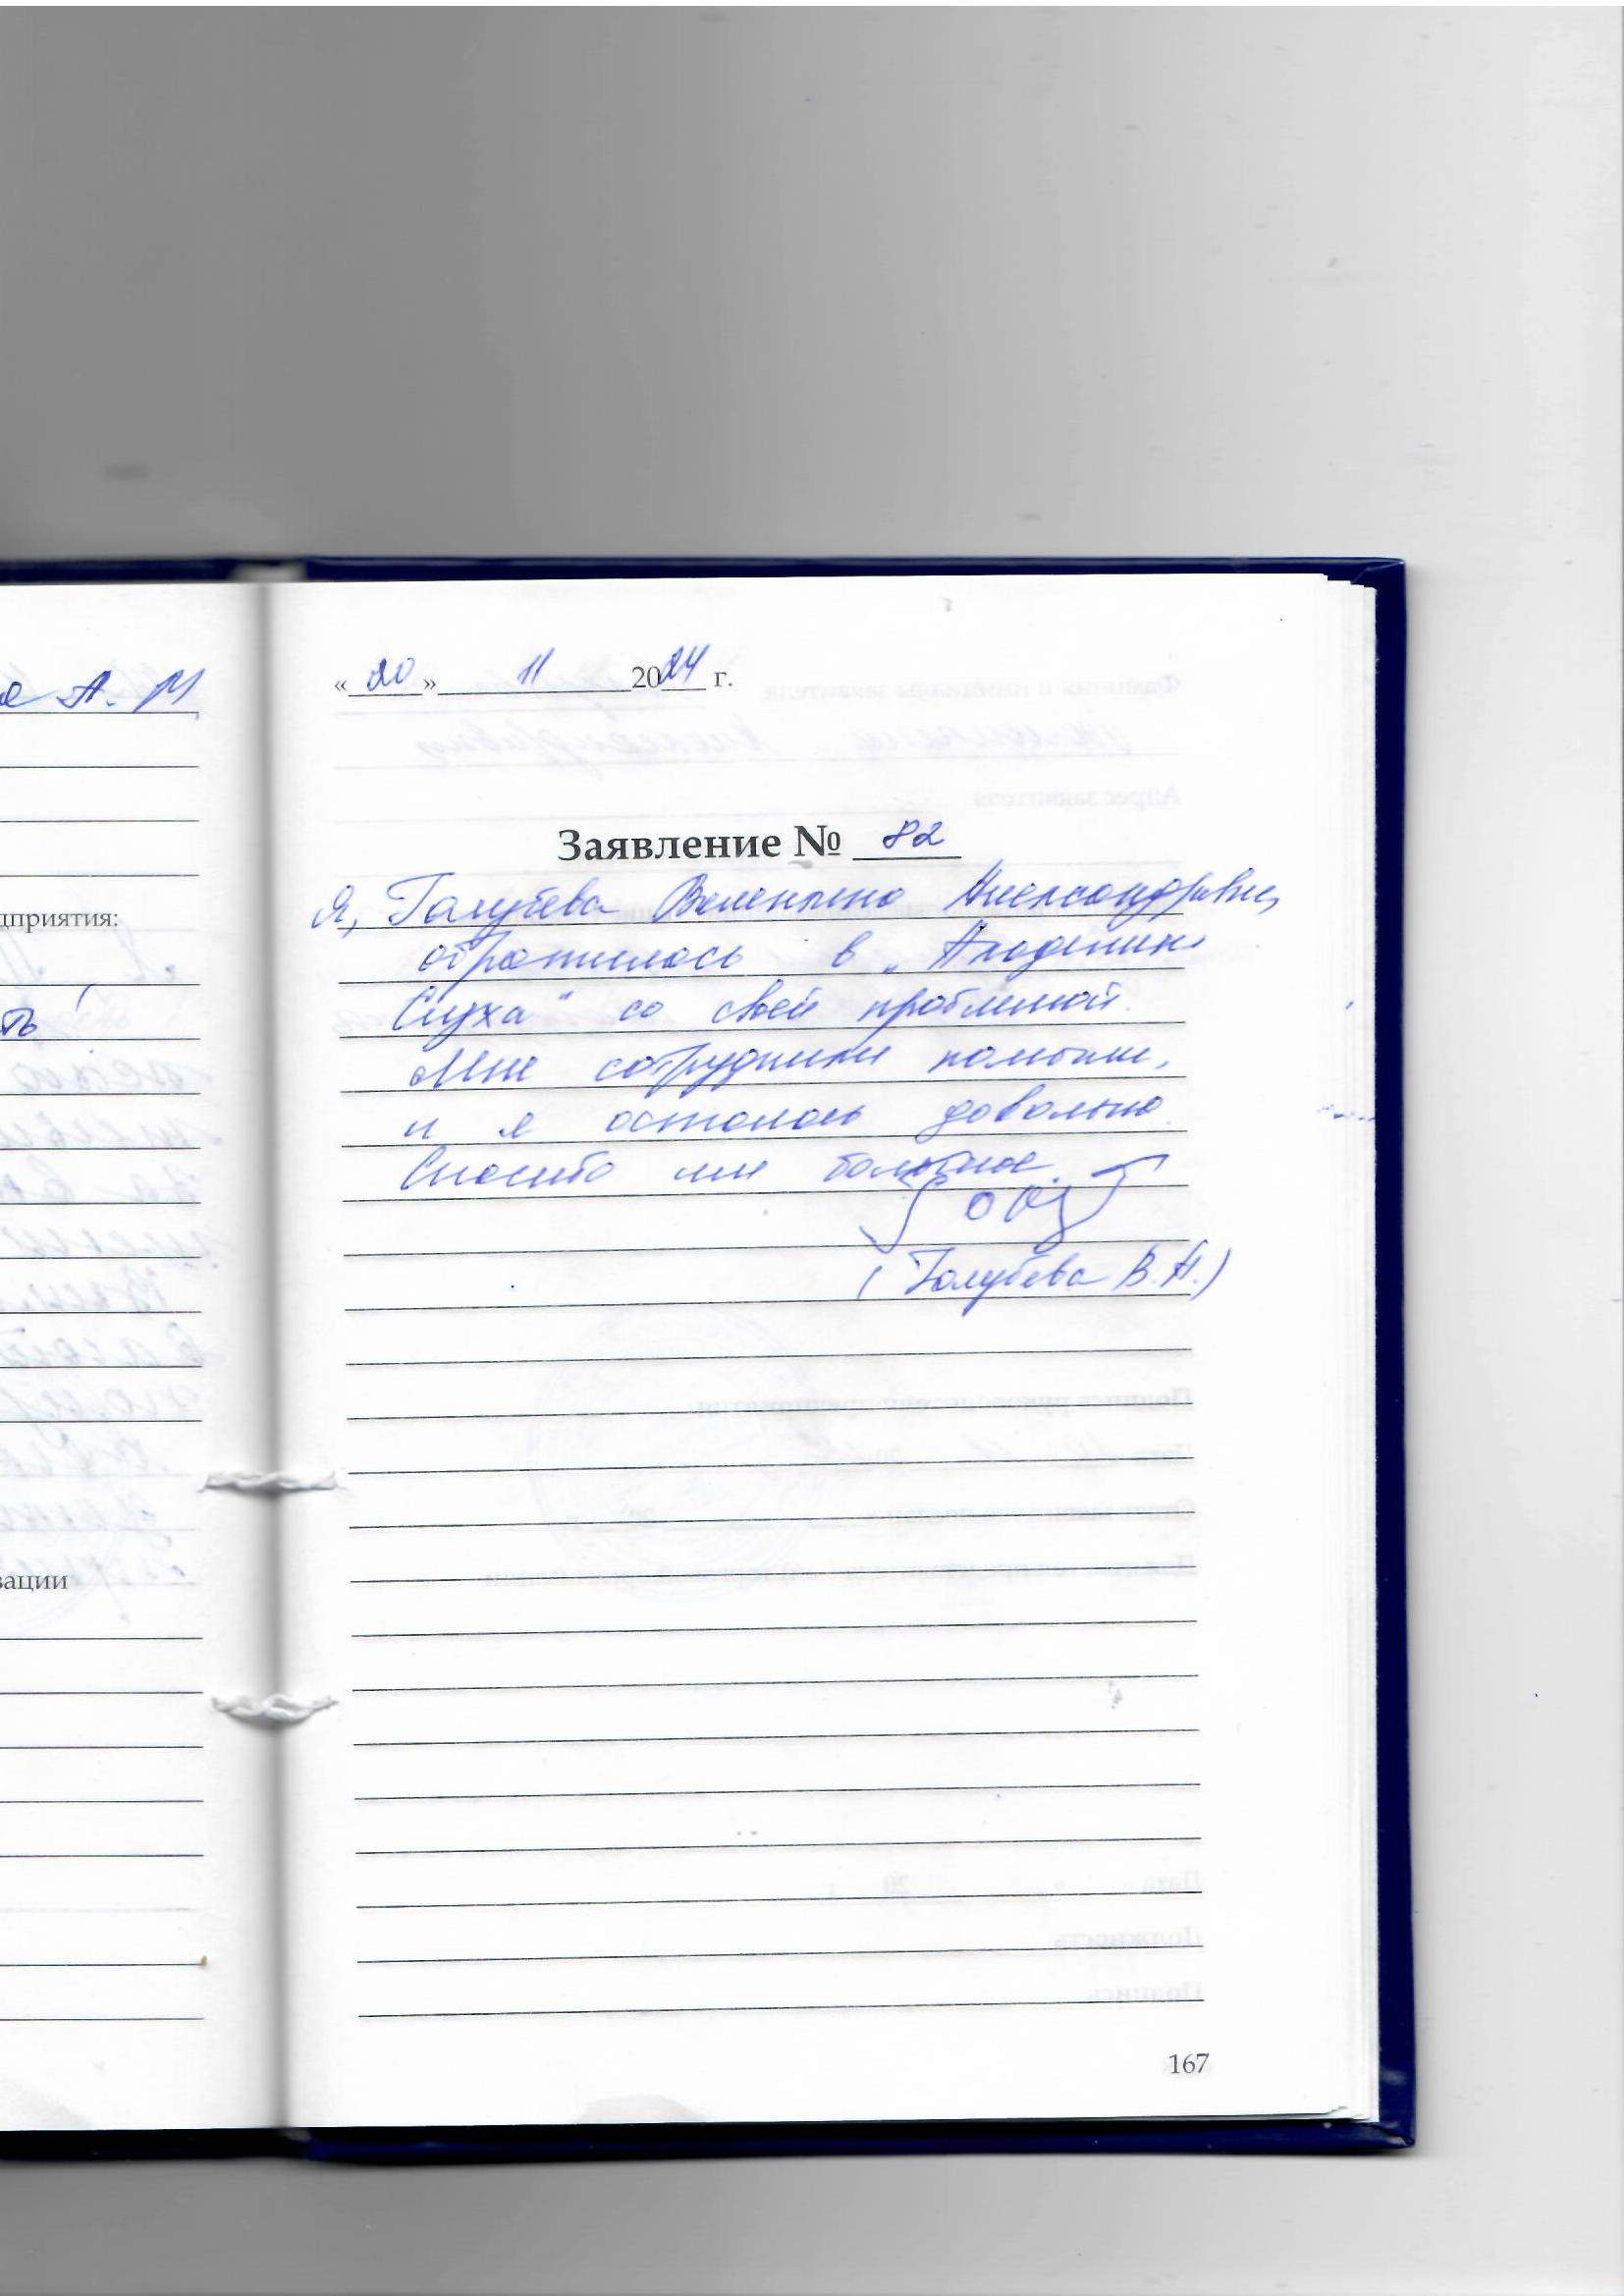 е А. М
дприятия:
ть
зации
«20» 11 2024 г.
Заявление № 82
Я, Голубева Валентина Александровна,
обратилась в „Академик
Слуха" со своей проблемой.
Мне сотрудники помогли,
и я осталась довольна.
Спасибо им большое.
(Голубева В.А.)
167